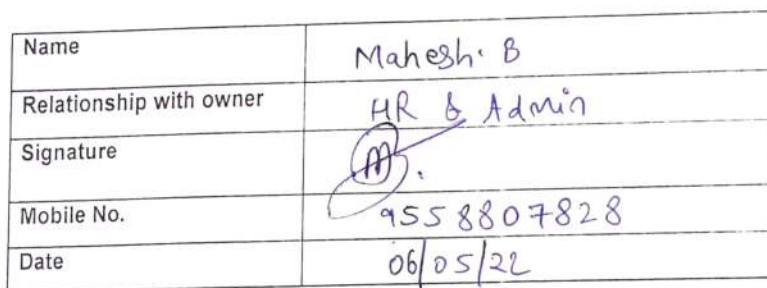 Name Mahesh. B
Relationship with owner HR & Admin
Signature
Mobile No. 9558807828
Date 06/05/22